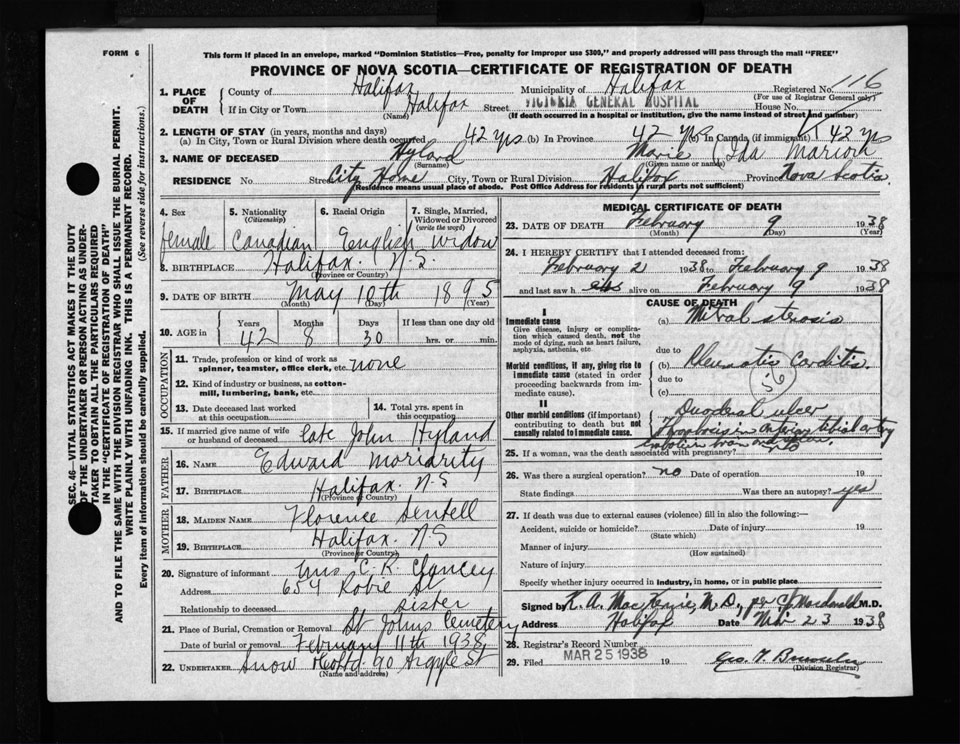 FORM 6
This form if placed in an envelope, marked "Dominion Statistics—Free, penalty for improper use $300," and properly addressed will pass through the mail "FREE"
PROVINCE OF NOVA SCOTIA—CERTIFICATE OF REGISTRATION OF DEATH
1. PLACE OF DEATH
County of Halifax Municipality of Halifax Registered No. 116
(For use of Registrar General only)
If in City or Town Halifax Street VICTORIA GENERAL HOSPITAL House No.
(Name) (If death occurred in a hospital or institution, give the name instead of street and number)
2. LENGTH OF STAY (in years, months and days)
(a) In City, Town or Rural Division where death occurred 42 yrs (b) In Province 42 yrs (c) In Canada (if immigrant) 42 yrs
3. NAME OF DECEASED Hyland Marie (Ida
(Surname) (Given name or names)
RESIDENCE No. Street City Home City, Town or Rural Division Halifax Province Nova Scotia
(Residence means usual place of abode. Post Office Address for residents in rural parts not sufficient)
4. Sex 5. Nationality (Citizenship) 6. Racial Origin 7. Single, Married, Widowed or Divorced (write the word)
female Canadian English widow
8. BIRTHPLACE Halifax. N.S.
(Province or Country)
9. DATE OF BIRTH May 10th 1895
(Month) (Day) (Year)
10. AGE in Years Months Days If less than one day old
42 8 30 hrs. or min.
OCCUPATION
11. Trade, profession or kind of work as spinner, teamster, office clerk, etc. none
12. Kind of industry or business, as cotton-mill, lumbering, bank, etc.
13. Date deceased last worked at this occupation
14. Total yrs. spent in this occupation
15. If married give name of wife or husband of deceased late John Hyland
FATHER
16. NAME Edward Moriarity
17. BIRTHPLACE Halifax. N.S
(Province or Country)
MOTHER
18. MAIDEN NAME Florence
19. BIRTHPLACE Halifax. N.S
(Province or Country)
20. Signature of informant Mrs C. R. Clancey
Address 654 Robie St
Relationship to deceased sister
21. Place of Burial, Cremation or Removal St Johns Cemetery
Date of burial or removal February 11th 1938
22. UNDERTAKER Snow 90 Argyle St
(Name and address)
MEDICAL CERTIFICATE OF DEATH
23. DATE OF DEATH February 9 1938
(Month) (Day) (Year)
24. I HEREBY CERTIFY that I attended deceased from:
February 2 1938 to February 9 1938
and last saw h alive on February 9 1938
CAUSE OF DEATH
I
Immediate cause
Give disease, injury or complication which caused death, not the mode of dying, such as heart failure, asphyxia, asthenia, etc
(a) Mitral stenosis
due to
Morbid conditions, if any, giving rise to immediate cause (stated in order proceeding backwards from immediate cause).
(b) Rheumatic Carditis.
due to
(c)
56
II
Other morbid conditions (if important) contributing to death but not causally related to immediate cause.
Duodenal ulcer
25. If a woman, was the death associated with pregnancy? no
26. Was there a surgical operation? no Date of operation 19
State findings Was there an autopsy? yes
27. If death was due to external causes (violence) fill in also the following:—
Accident, suicide or homicide? Date of injury 19
(State which)
Manner of injury
(How sustained)
Nature of injury
Specify whether injury occurred in industry, in home, or in public place
Signed by K. A. MacKenzie, M.D., per C.J. Macdonald M.D.
Address Halifax Date 23 1938
28. Registrar's Record No.
29. Filed MAR 25 1938 19
(Division Registrar)
SEC. 46—VITAL STATISTICS ACT MAKES IT THE DUTY
OF THE UNDERTAKER OR PERSON ACTING AS UNDERTAKER TO OBTAIN ALL THE PARTICULARS REQUIRED
IN THE "CERTIFICATE OF REGISTRATION OF DEATH"
AND TO FILE THE SAME WITH THE DIVISION REGISTRAR WHO SHALL ISSUE THE BURIAL PERMIT.
WRITE PLAINLY WITH UNFADING INK. THIS IS A PERMANENT RECORD.
Every item of information should be carefully supplied. (See reverse side for instructions.)